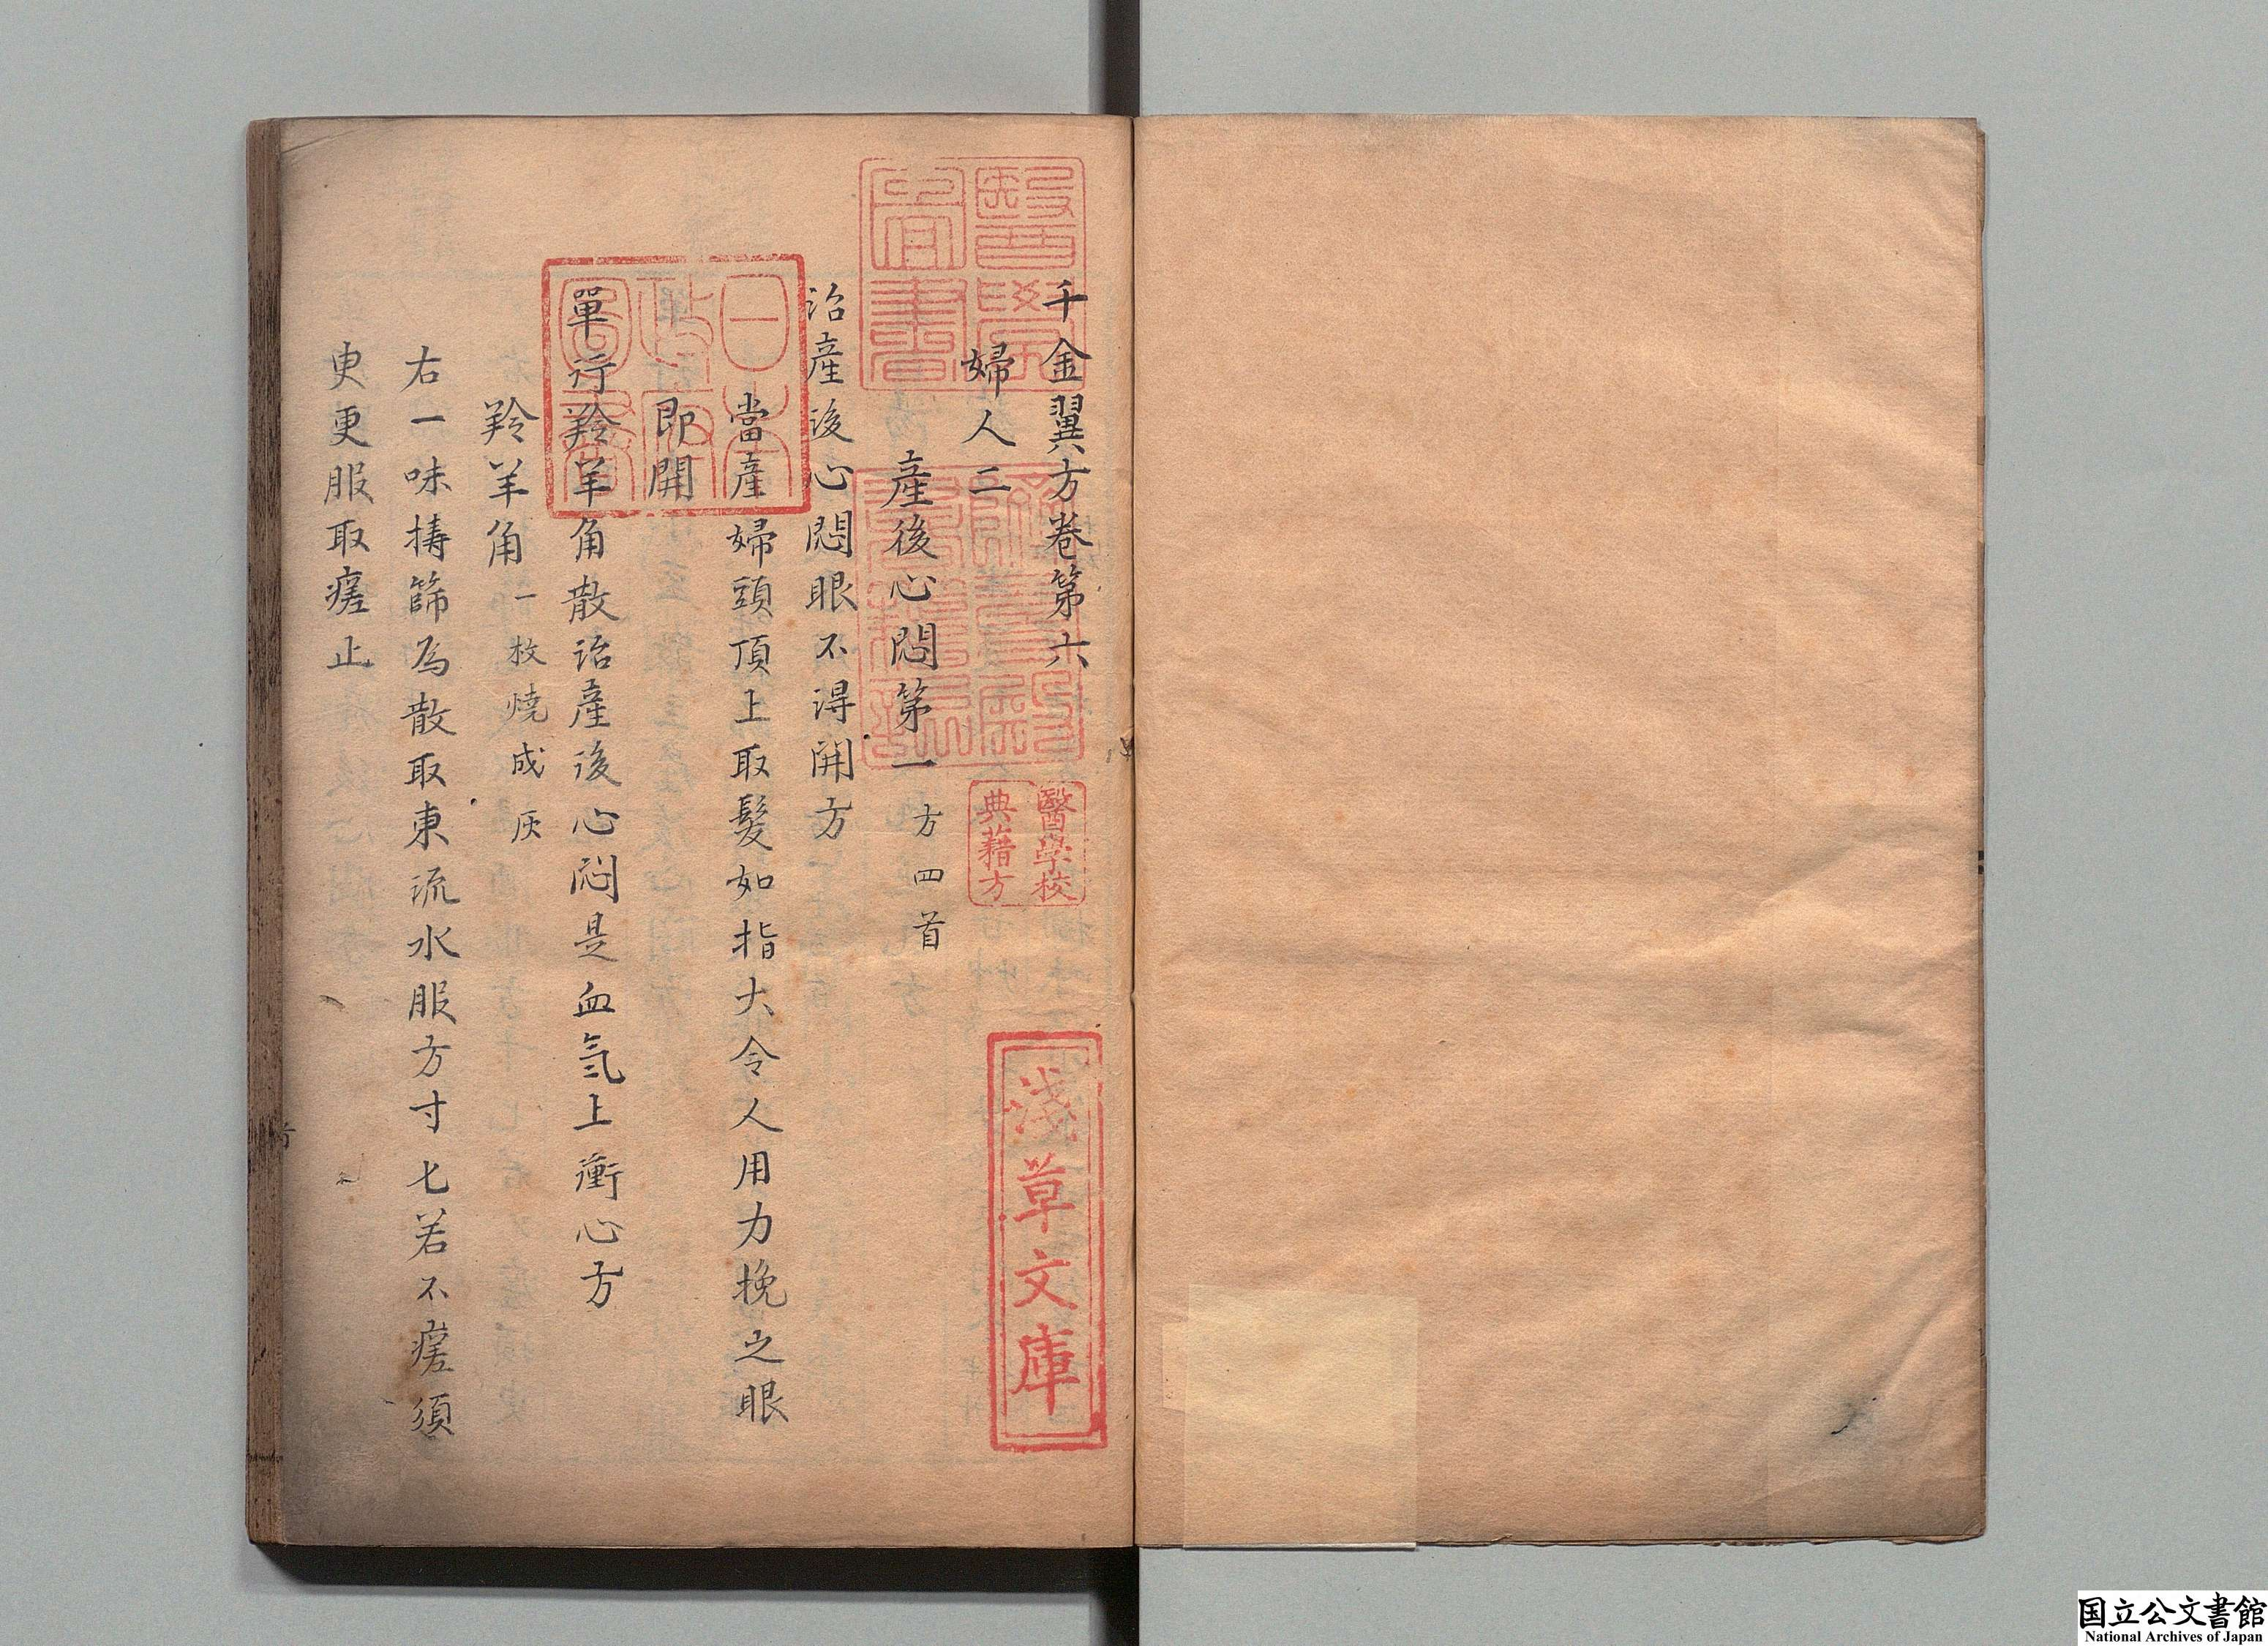 千金翼方卷第六
婦人二
產後心悶第一 方四首
治產後心悶眼不得開方
當產婦頭頂上取髮如指大令人用力挽之眼
即開
單行羚羊角散治產後心悶是血氣上衝心方
羚羊角 一枚燒成灰
右一味擣篩為散取東流水服方寸匕若不瘥須
臾更服取瘥止
醫學圖書
日本政府圖書
醫學校
典藉方
淺草文庫
国立公文書館
National Archives of Japan